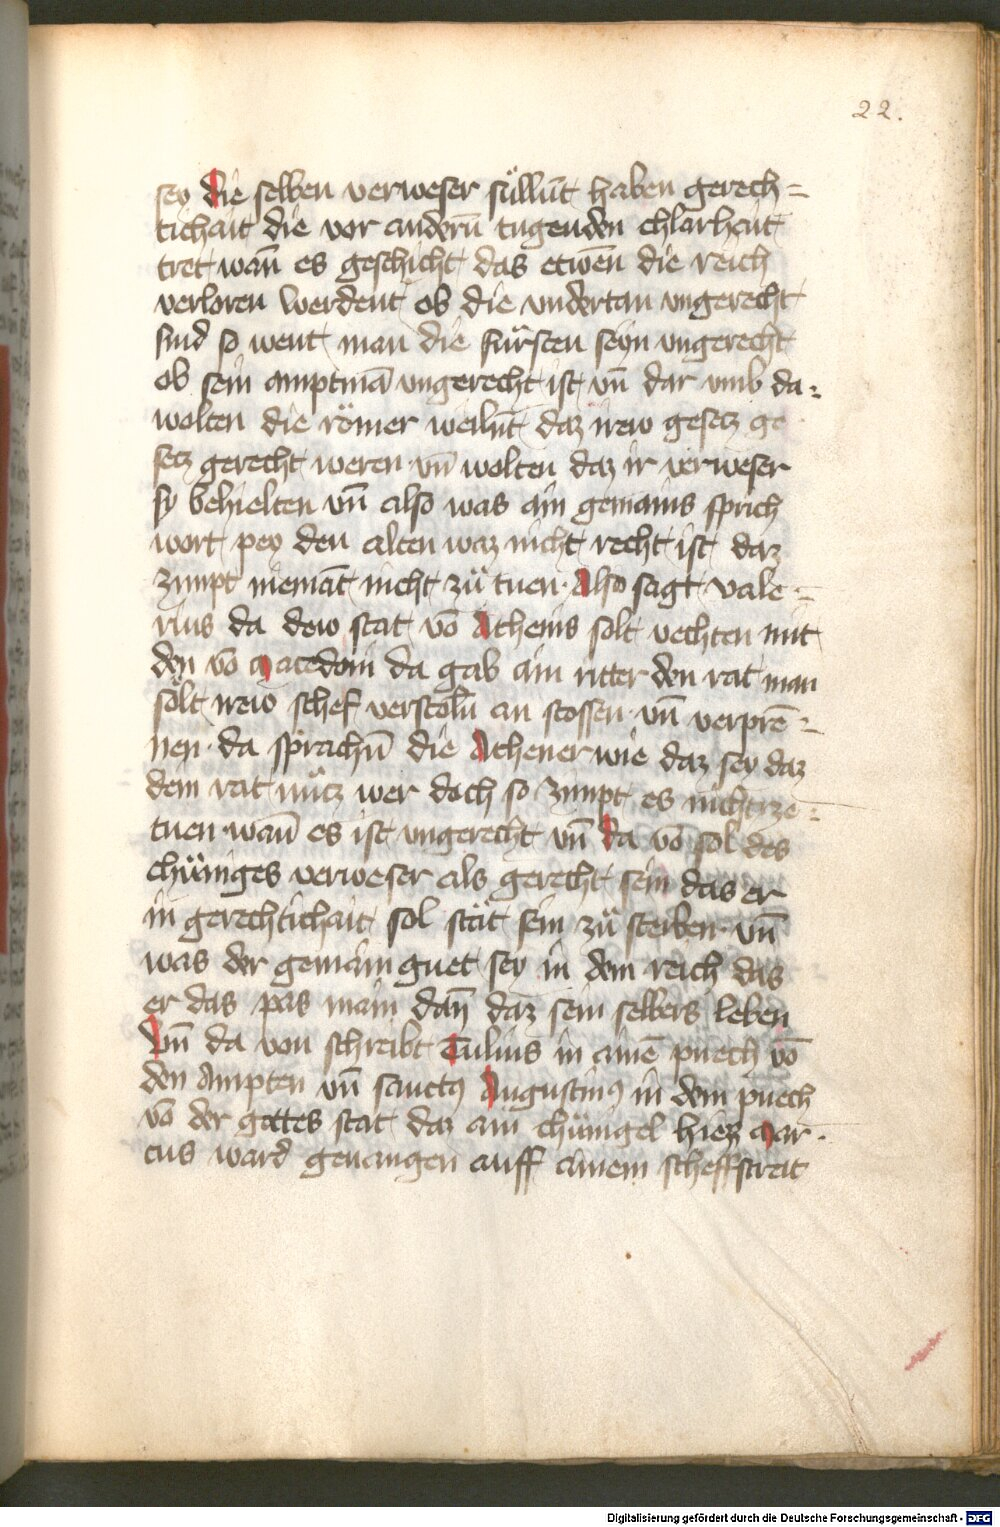 22.
sey die selben verweser süllent haben gerech=
tichait die vor anderñ tugenden chlarhait
tret wañ es geschicht das etweñ die reich
verloren werdent ob die vndertan vngerecht
sind so went man die fürsten seyn vngerecht
ob sein amptmā vngerecht ist vñ dar vmb da=
wolten die römer weilnt daz irew gesetz ge
setz gerecht weren vñ wolten daz ir verweser
sy behielten vñ also was ain gemains sprich
wort pey den alten waz nicht recht ist daz
zimpt niemāt nicht zü tuen· Also sagt vale=
rius da dew stat vō Athenis solt vechten mit
den vō Macedoni da gab ain ritter den rat man
sölt irew schef verstoln̄ an stossen vñ verprē=
nen· da sprachn̄ die Athener wie daz sey daz
dem rat nütz wer doch so zimpt es nicht ze=
tuen wañ es ist vngerecht vñ da vō sol des
chüniges verweser als gerecht sein das er
in gerechtichait sol stät sein zü sterben· vñ
was der gemain guet sey in dem reich das
er das pas main dañ daz sein selbers leben
vñ da von schreibt Tulius in ainē puech vō
den Ampten vñ sanctꝰ Augustinꝰ in dem puech
vō der gottes stat daz ain chünigel hiez Mar·
cus ward geuangen auff ainem scheffstreit
Digitalisierung gefördert durch die Deutsche Forschungsgemeinschaft - DFG